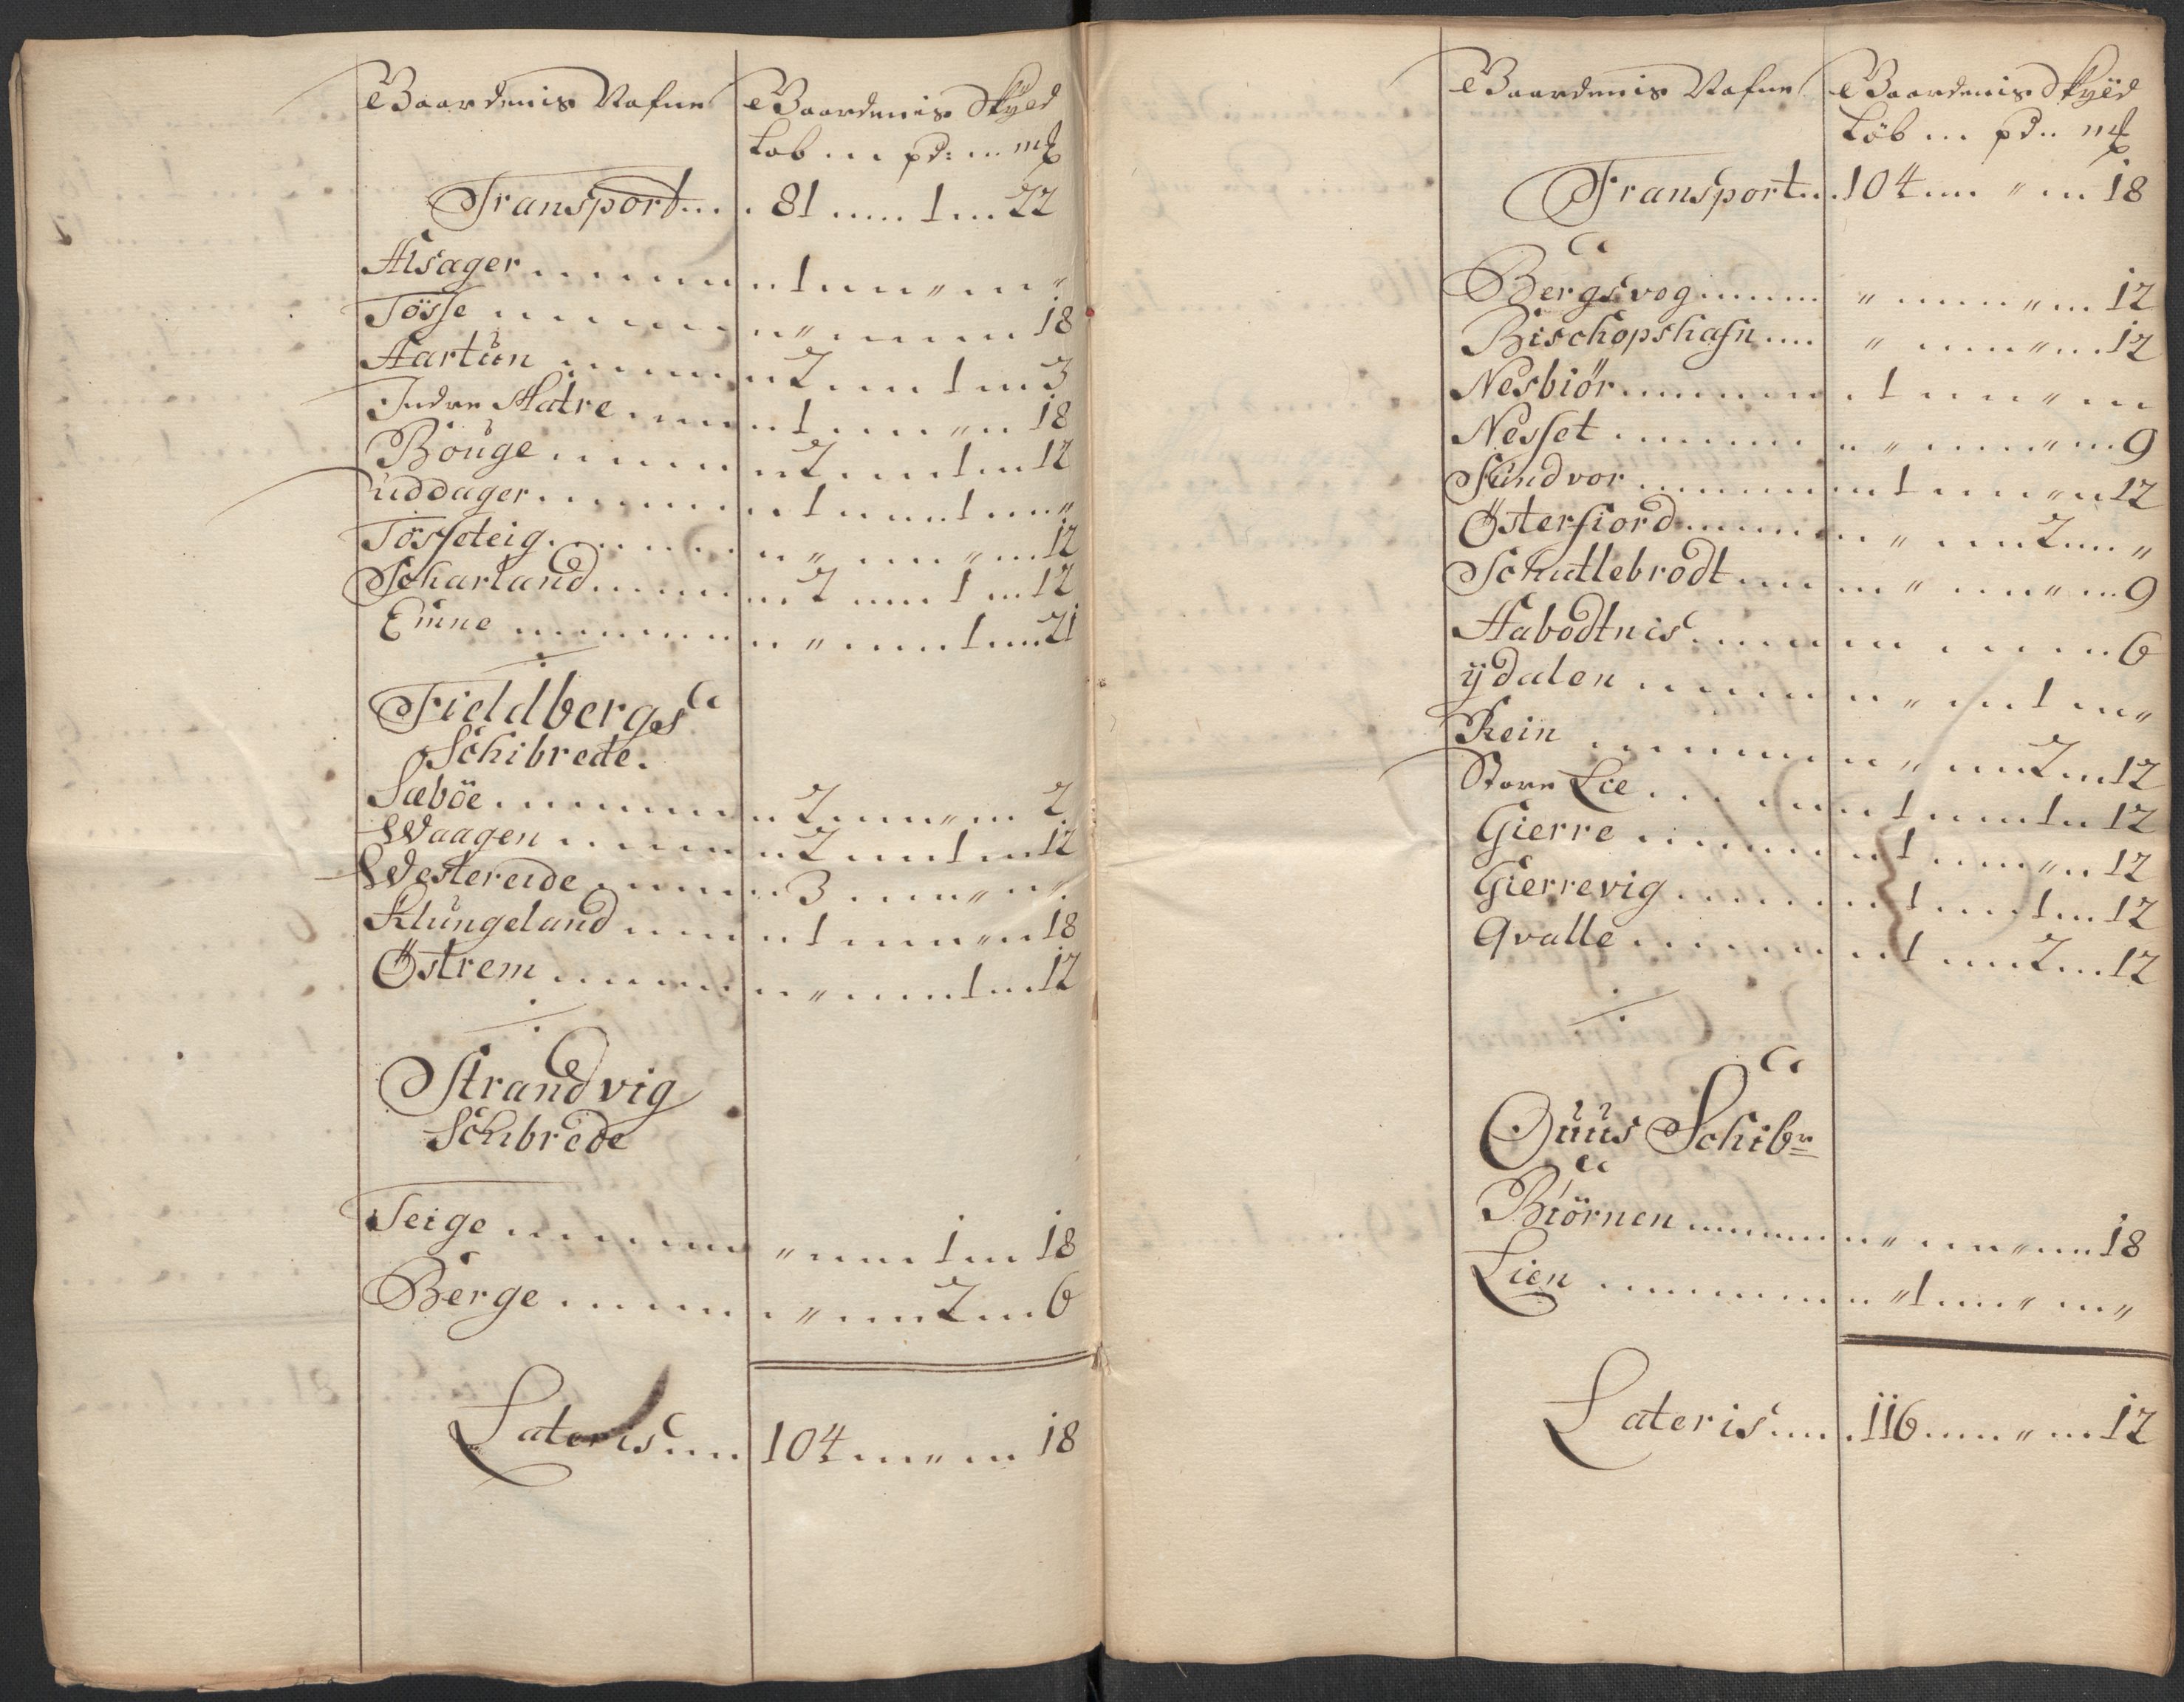 Gaardenis Nafne Gaardenis Skyld
Løb ... pd: ... mk
Transport ... 81 ... 1 ... 22
Alsager ... 1 ... " ... "
Tösse ... " ... 18
Aartün ... 2 ... 1 ... 3
Indre Matre ... 1 ... " ... 18
Bouge ... 2 ... 1 ... 12
uddager ... 1 ... 1 ... "
Tosseteig ... " ... " ... 12
Scharland ... 2 ... 1 ... 12
Emne ... " ... 1 ... 21
Fieldbergs
Schibrede.
Sæböe ... 2 ... " ... 2
Waagen ... 2 ... 1 ... 12
Westereide ... 3 ... " ... "
Klüngeland ... 1 ... " ... 18
Östrem ... " ... 1 ... 12
Strandvig
Schibrede
Teige ... " ... 1 ... 18
Berge ... " ... 2 ... 6
Lateris ... 104 ... " ... 18
Gaardenis Nafne Gaardenis Skyld
Löb ... pd .. mk
Transport ... 104 ... " ... 18
Bergsvog ... " ... " ... 12
Bischopshafn ... " ... " ... 12
Nesbiör ... 1 ... " ...
Nesset ... " ... " ... 9
Sündvor ... 1 ... " ... 12
Österfiord ... " ... 2 ... "
Schutlebrodt ... " ... " ... 9
Habodtnis ... 6
ÿdalen ... " ... 1 ... "
Rein ... " ... 2 ... 12
Store Lie ... 1 ... 1 ... 12
Gierre ... 1 ... " ... 12
Gierrevig ... 1 ... 1 ... 12
Qvalle ... 1 ... 2 ... 12
Ouus Schibr
Biörnen ... " ... " ... 18
Lien ... " 1 ... " ... "
Lateris ... 116 ... " ... 12